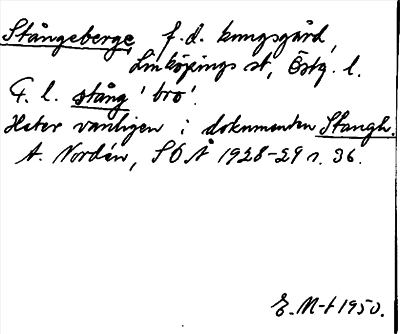 Stångeberge, f.d. kungsgård,
Linköpings st, Östg. l.
F. l. stång 'bro'.
Heter vanligen i dokumenten Stangh.
A. Nordén, SOÅ 1928-29 s. 36.
E. M-t 1950.